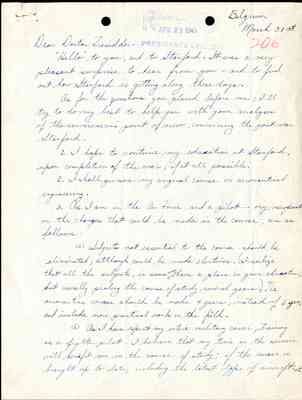 Belgium
March 31st
APR 23 1945
206
Dear Doctor Tresidder:
"Hello" to you, and to Stanford. It was a very
pleasant surprise to hear from you - and to find
out how Stanford is getting along these days.
As for the questions you placed before me; I'll
try to do my best to help you with your analysis
of the servicemens point of view, concerning the post war
Stanford.
1. I hope to continue my education at Stanford,
upon completion of the war, if at all possible.
2. I shall pursue my original course in aeronautical
engineering.
3. As I am in the Air Force and a pilot - my
on the changes that could be made in the course, are as
follows:
(a) Subjects not essential to the course should be
eliminated, although could be made electives. I realize
that all the subjects, in some have a place in your education,
but usually prolong the course of study, several years. The
course should be made 4 years, instead of 5 years,
and include more practical work in the field.
(b) As I have spent my entire military career, training
as a fighter pilot - I believe that my time in the service
will benefit me in the course of study; if the course is
brought up to date, including the latest type of aircraft